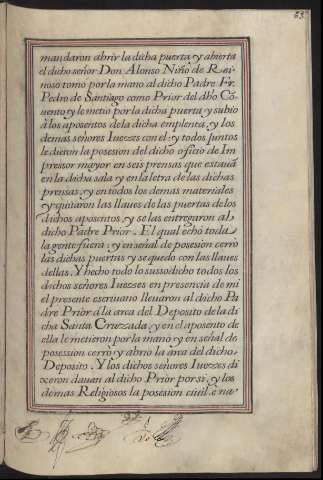 63
mandaron abrir la dicha puerta, y abierta
el dicho señor Don Alonso Niño de Rei-
noso tomo por la mano al dicho Padre Fr.
Pedro de Santiago como Prior del dho Cõ-
uento y le metio por la dicha puerta y subio
à los aposentos de la dicha emplenta, y los
demas señores Iuezes con el: y todos juntos
le dieron la posesion del dicho oficio de Im
pressor mayor en seis prensas que estauã
en la dicha sala y en la letra de las dichas
prensas, y en todos los demas materiales
y quitaron las llaues de las puertas de los
dichos aposentos, y se las entregaron al
dicho Padre Prior. El qual echò toda
la gente fuera: y en señal de posesion cerrò
las dichas puertas y se quedo con las llaues
dellas. Y hecho todo lo susodicho todos los
dichos señores Iuezes en presencia de mi
el presente escriuano lleuaron al dicho Pa
dre Prior à la arca del Deposito de la di
cha Santa Cruzada: y en el aposento de
ella le metieron por la mano y en señal de
possession cerrò y abrio la arca del dicho
Deposito. Y los dichos señores Iuezes di
xeron dauan al dicho Prior por si, y los
demas Religiosos la posesion ciuil, e na-